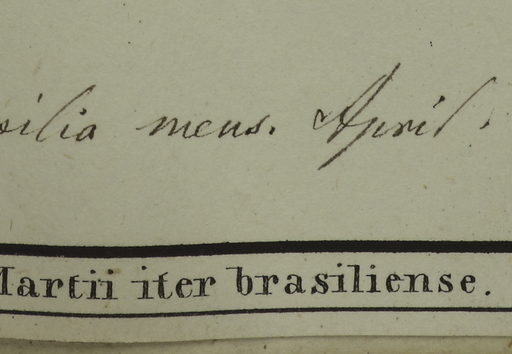 silia mens. April.
Martii iter brasiliense.